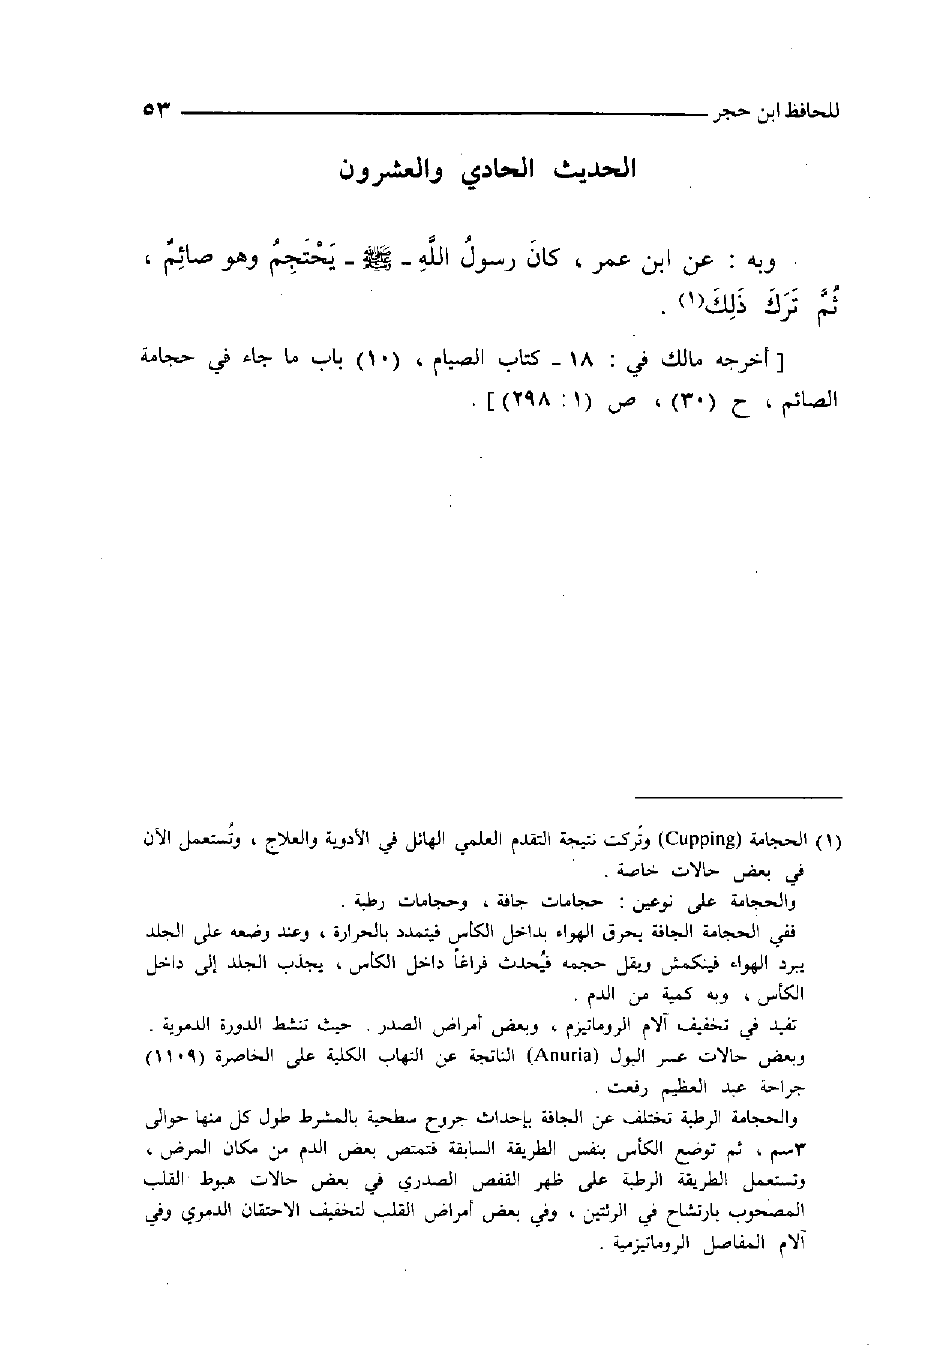 للحافظ ابن حجر ٥٣
الحديث الحادي والعشرون
وبه : عن ابن عمر ، كانَ رسولُ اللَّهِ ـ ﷺ ـ يَحْتَجِمُ وهو صائِمٌ ،
ثُمَّ تَرَكَ ذَلِكَ(١) .
[ أخرجه مالك في : ١٨ ـ كتاب الصيام ، (١٠) باب ما جاء في حجامة
الصائم ، ح (٣٠) ، ص (١ : ٢٩٨) ] .
(١) الحجامة (Cupping) وتُركت نتيجة التقدم العلمي الهائل في الأدوية والعلاج ، وتُستعمل الآن
في بعض حالات خاصة .
والحجامة على نوعين : حجامات جافة ، وحجامات رطبة .
ففي الحجامة الجافة يحرق الهواء بداخل الكأس فيتمدد بالحرارة ، وعند وضعه على الجلد
يبرد الهواء فينكمش ويقل حجمه فيُحدث فراغاً داخل الكأس ، يجذب الجلد إلى داخل
الكأس ، وبه كمية من الدم .
تفيد في تخفيف آلام الروماتيزم ، وبعض أمراض الصدر . حيث تنشط الدورة الدموية .
وبعض حالات عسر البول (Anuria) الناتجة عن التهاب الكلية على الخاصرة (١١٠٩)
جراحة عبد العظيم رفعت .
والحجامة الرطبة تختلف عن الجافة بإحداث جروح سطحية بالمشرط طول كل منها حوالى
٣سم ، ثم توضع الكأس بنفس الطريقة السابقة فتمتص بعض الدم من مكان المرض ،
وتستعمل الطريقة الرطبة على ظهر القفص الصدري في بعض حالات هبوط القلب
المصحوب بارتشاح في الرئتين ، وفي بعض أمراض القلب لتخفيف الاحتقان الدموي وفي
آلام المفاصل الروماتيزمية .